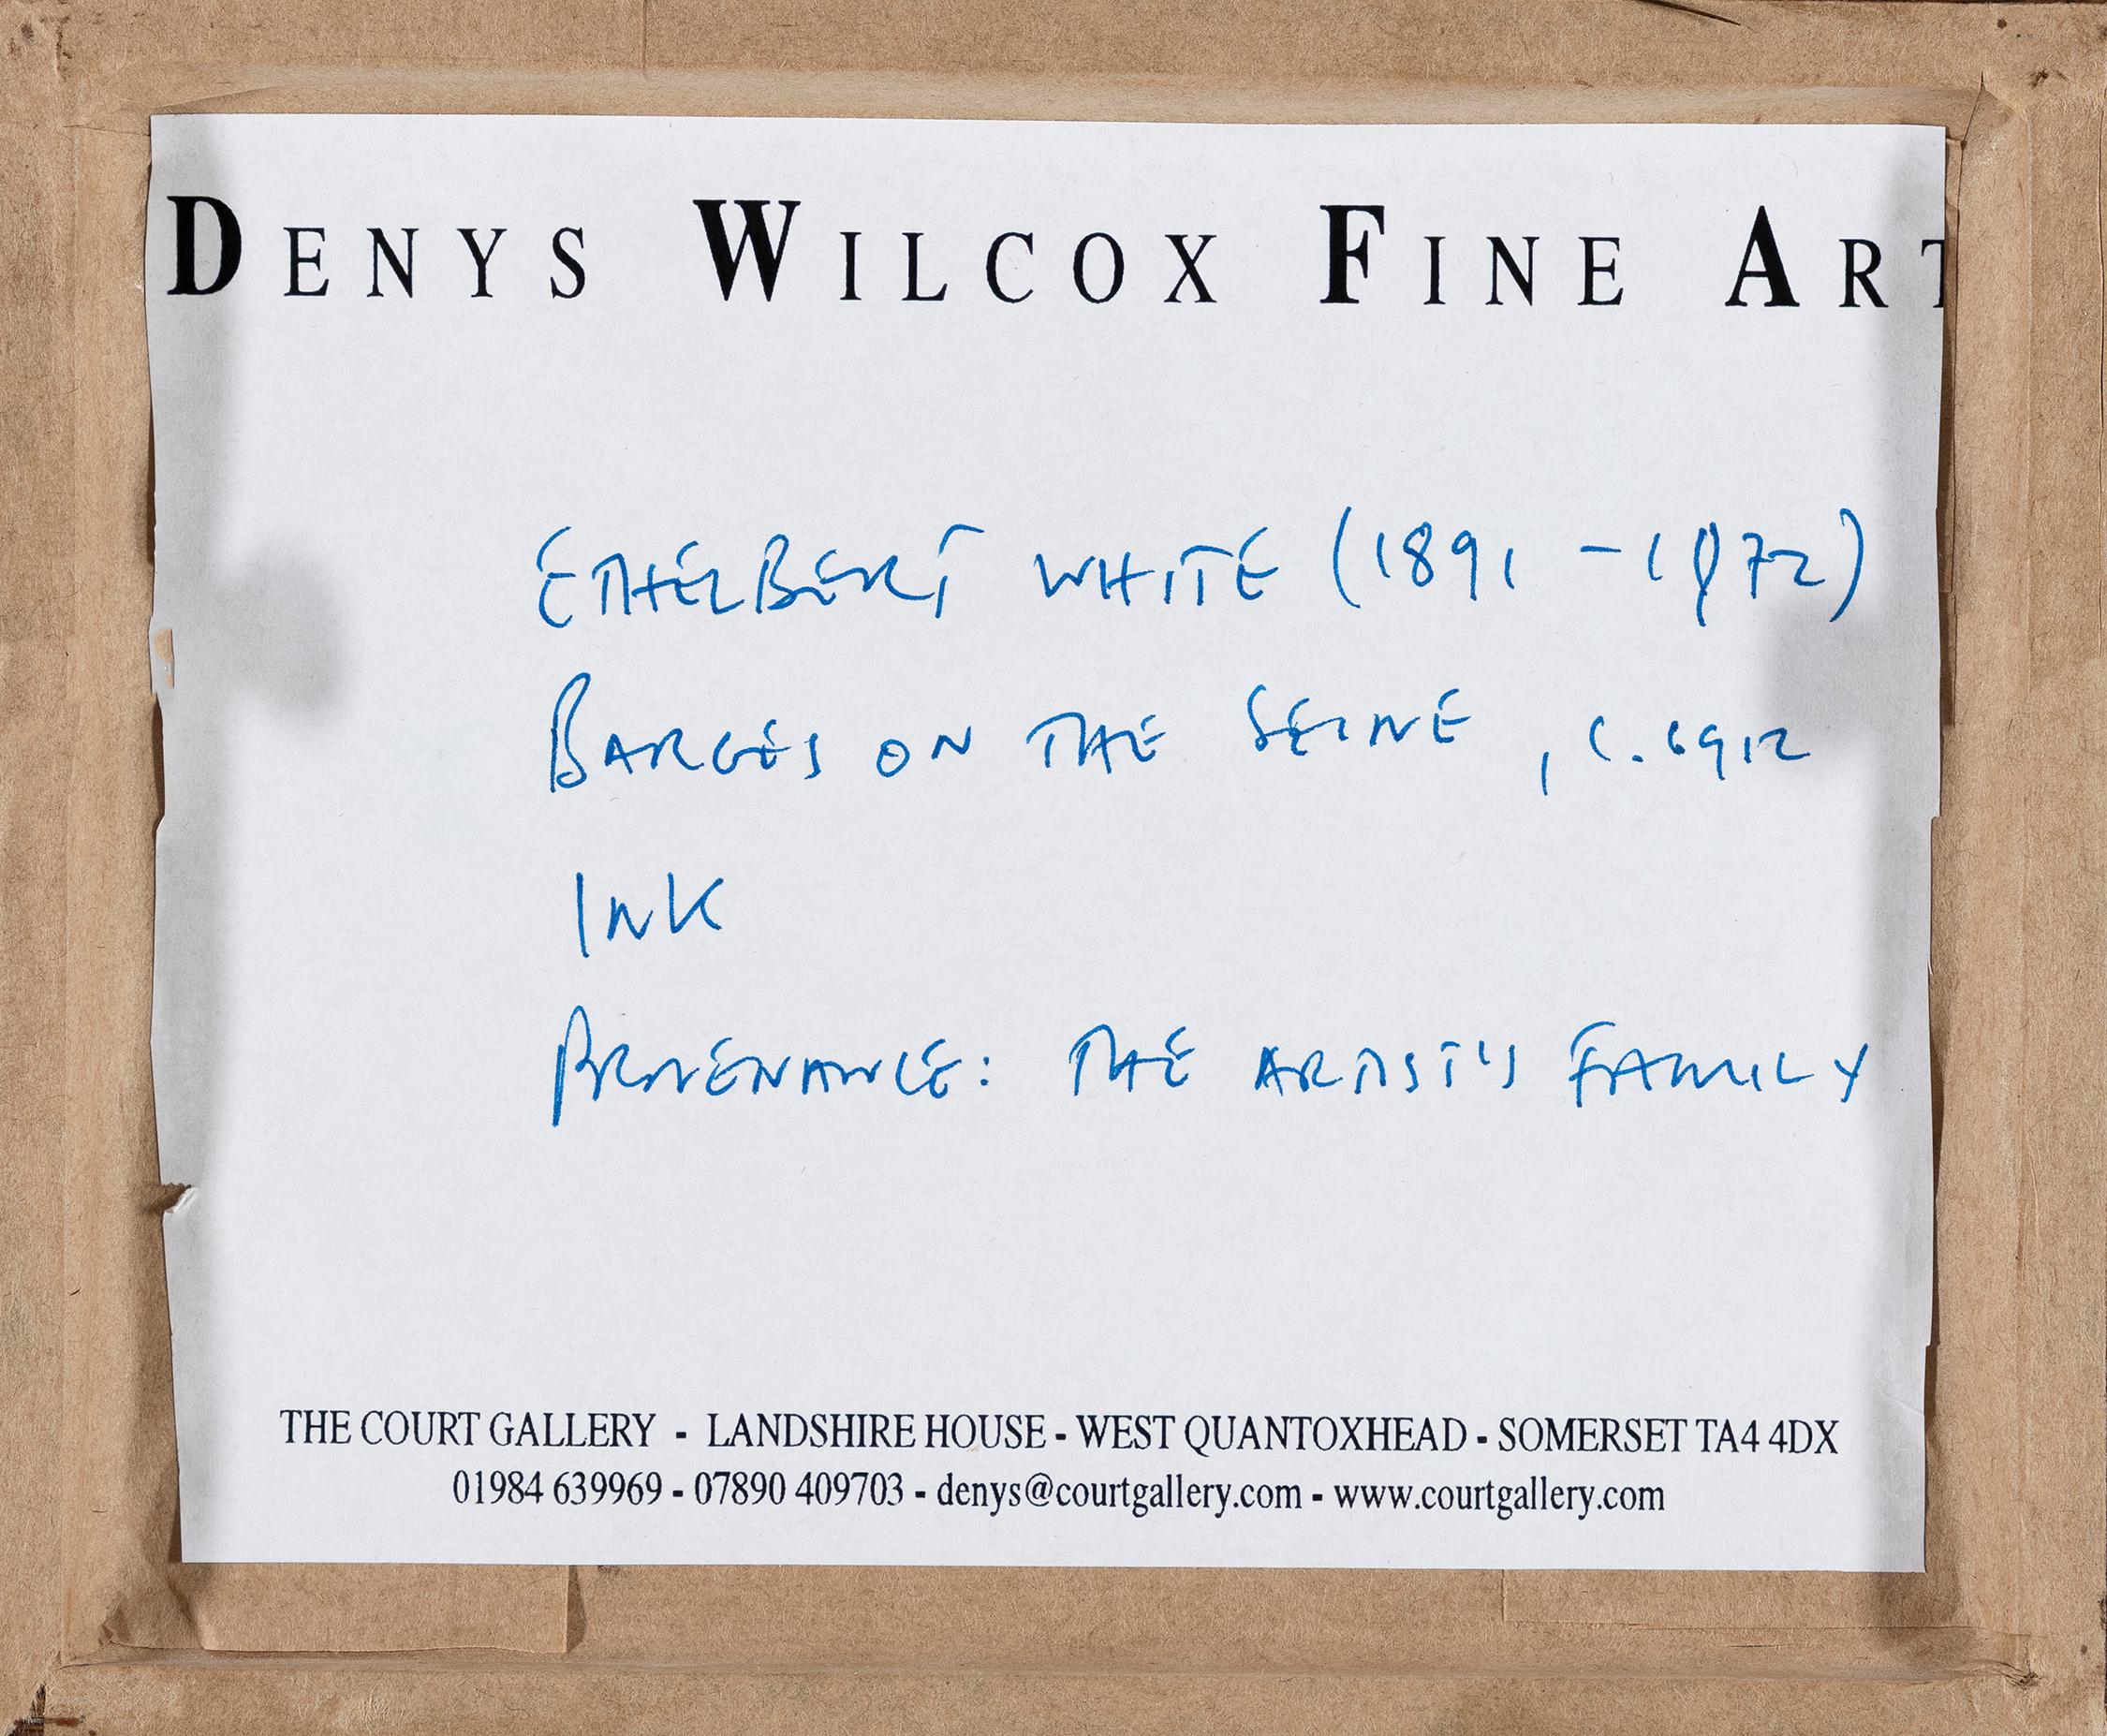 DENYS WILCOX FINE ART
ETHELBERT WHITE (1891 - 1972)
BARGES ON THE SEINE, C.1912
INK
PROVENANCE: THE ARTIST'S FAMILY
THE COURT GALLERY - LANDSHIRE HOUSE - WEST QUANTOXHEAD - SOMERSET TA4 4DX
01984 639969 - 07890 409703 - denys@courtgallery.com - www.courtgallery.com